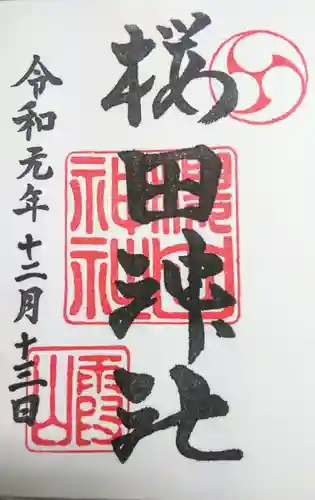 桜田神社
令和元年十二月十三日
櫻田
神社
霞山